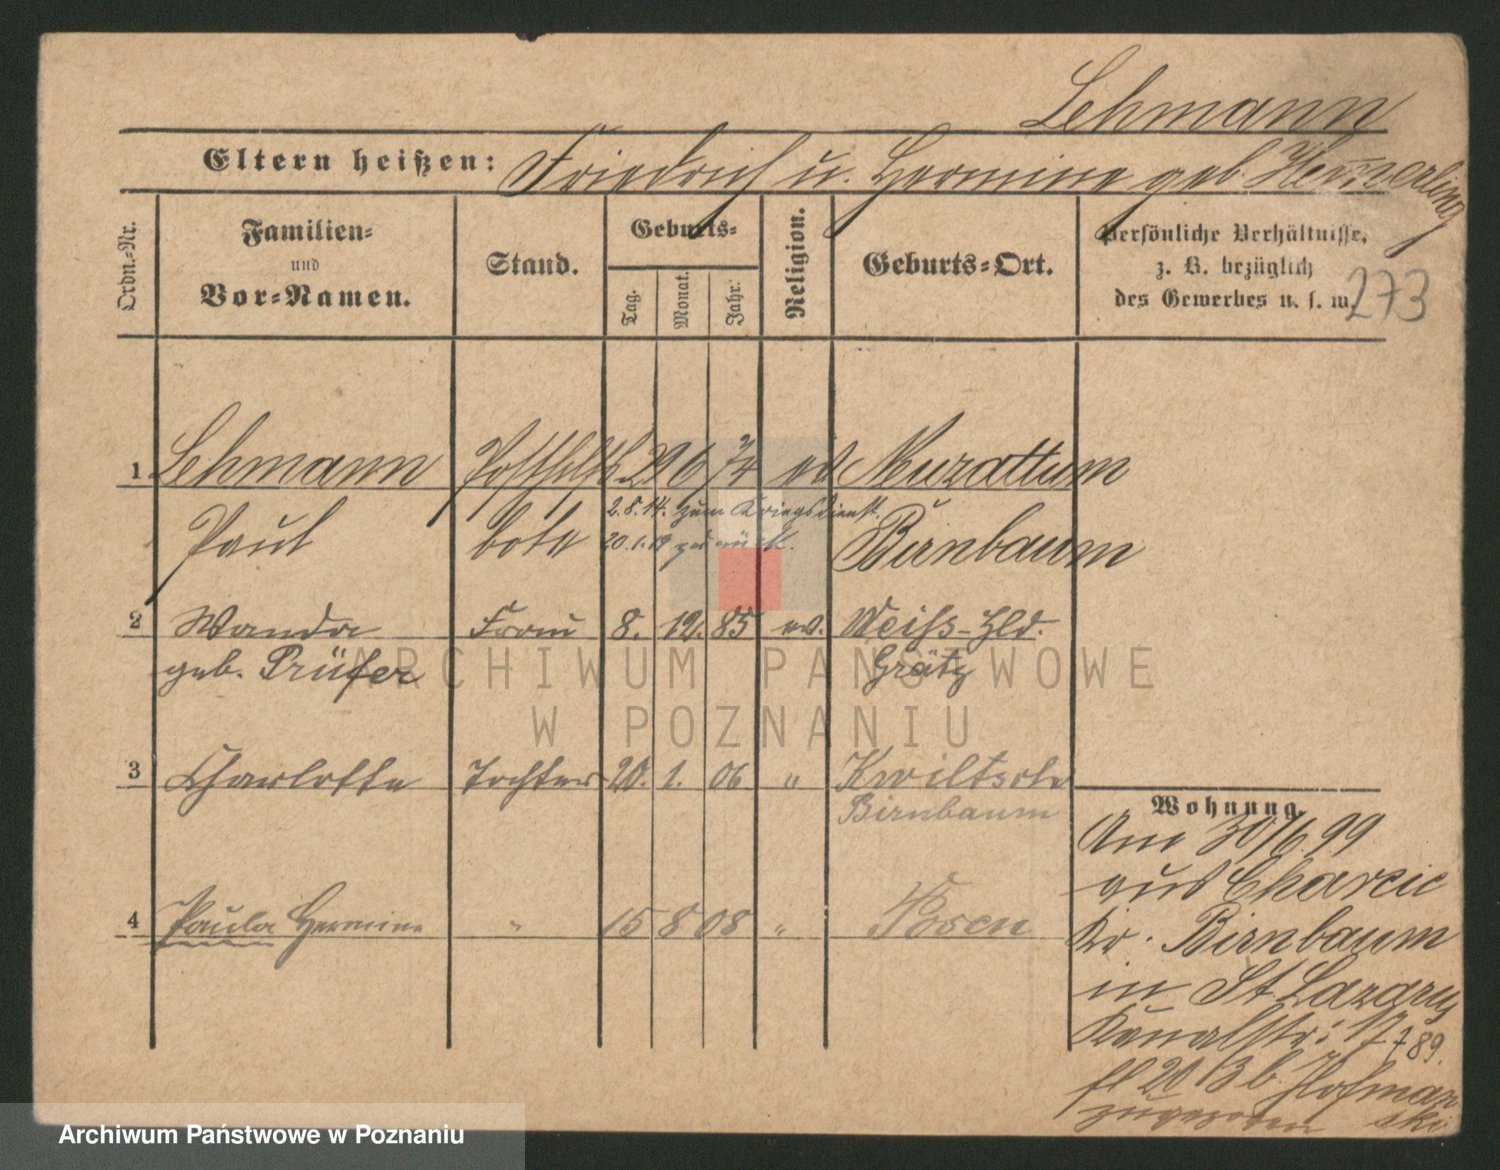 Lehmann
Eltern heißen: Friedrich u. Hermine geb. Hemmerling
Ordn.-Nr.
Familien-
und
Vor-Namen.
Stand.
Geburts-
Tag.
Monat.
Jahr.
Religion.
Geburts-Ort.
Persönliche Verhältnisse,
z. B. bezüglich
des Gewerbes u. s. w.
273
1 Lehmann 29 6 74 ev Murattum
Paul bote Birnbaum
2.8.14. zum Kriegsdienst.
20.1.19 zurück.
2 Wanda Frau 8. 12. 85 ev. Weiß-Hld.
geb. Prüfer Grätz
3 Charlotte Tochter 20. 1. 06 " Kwiltsch
Birnbaum
4 Paula Hermine " 15 8 08 " Posen
Wohnung.
Am 30/6 99
aus Charcic
Kr. Birnbaum
in St Lazarus
Kanalstr: 17
789.
20 B b. Hofmanski
zugezogen
ARCHIWUM PAŃSTWOWE
W POZNANIU
Archiwum Państwowe w Poznaniu